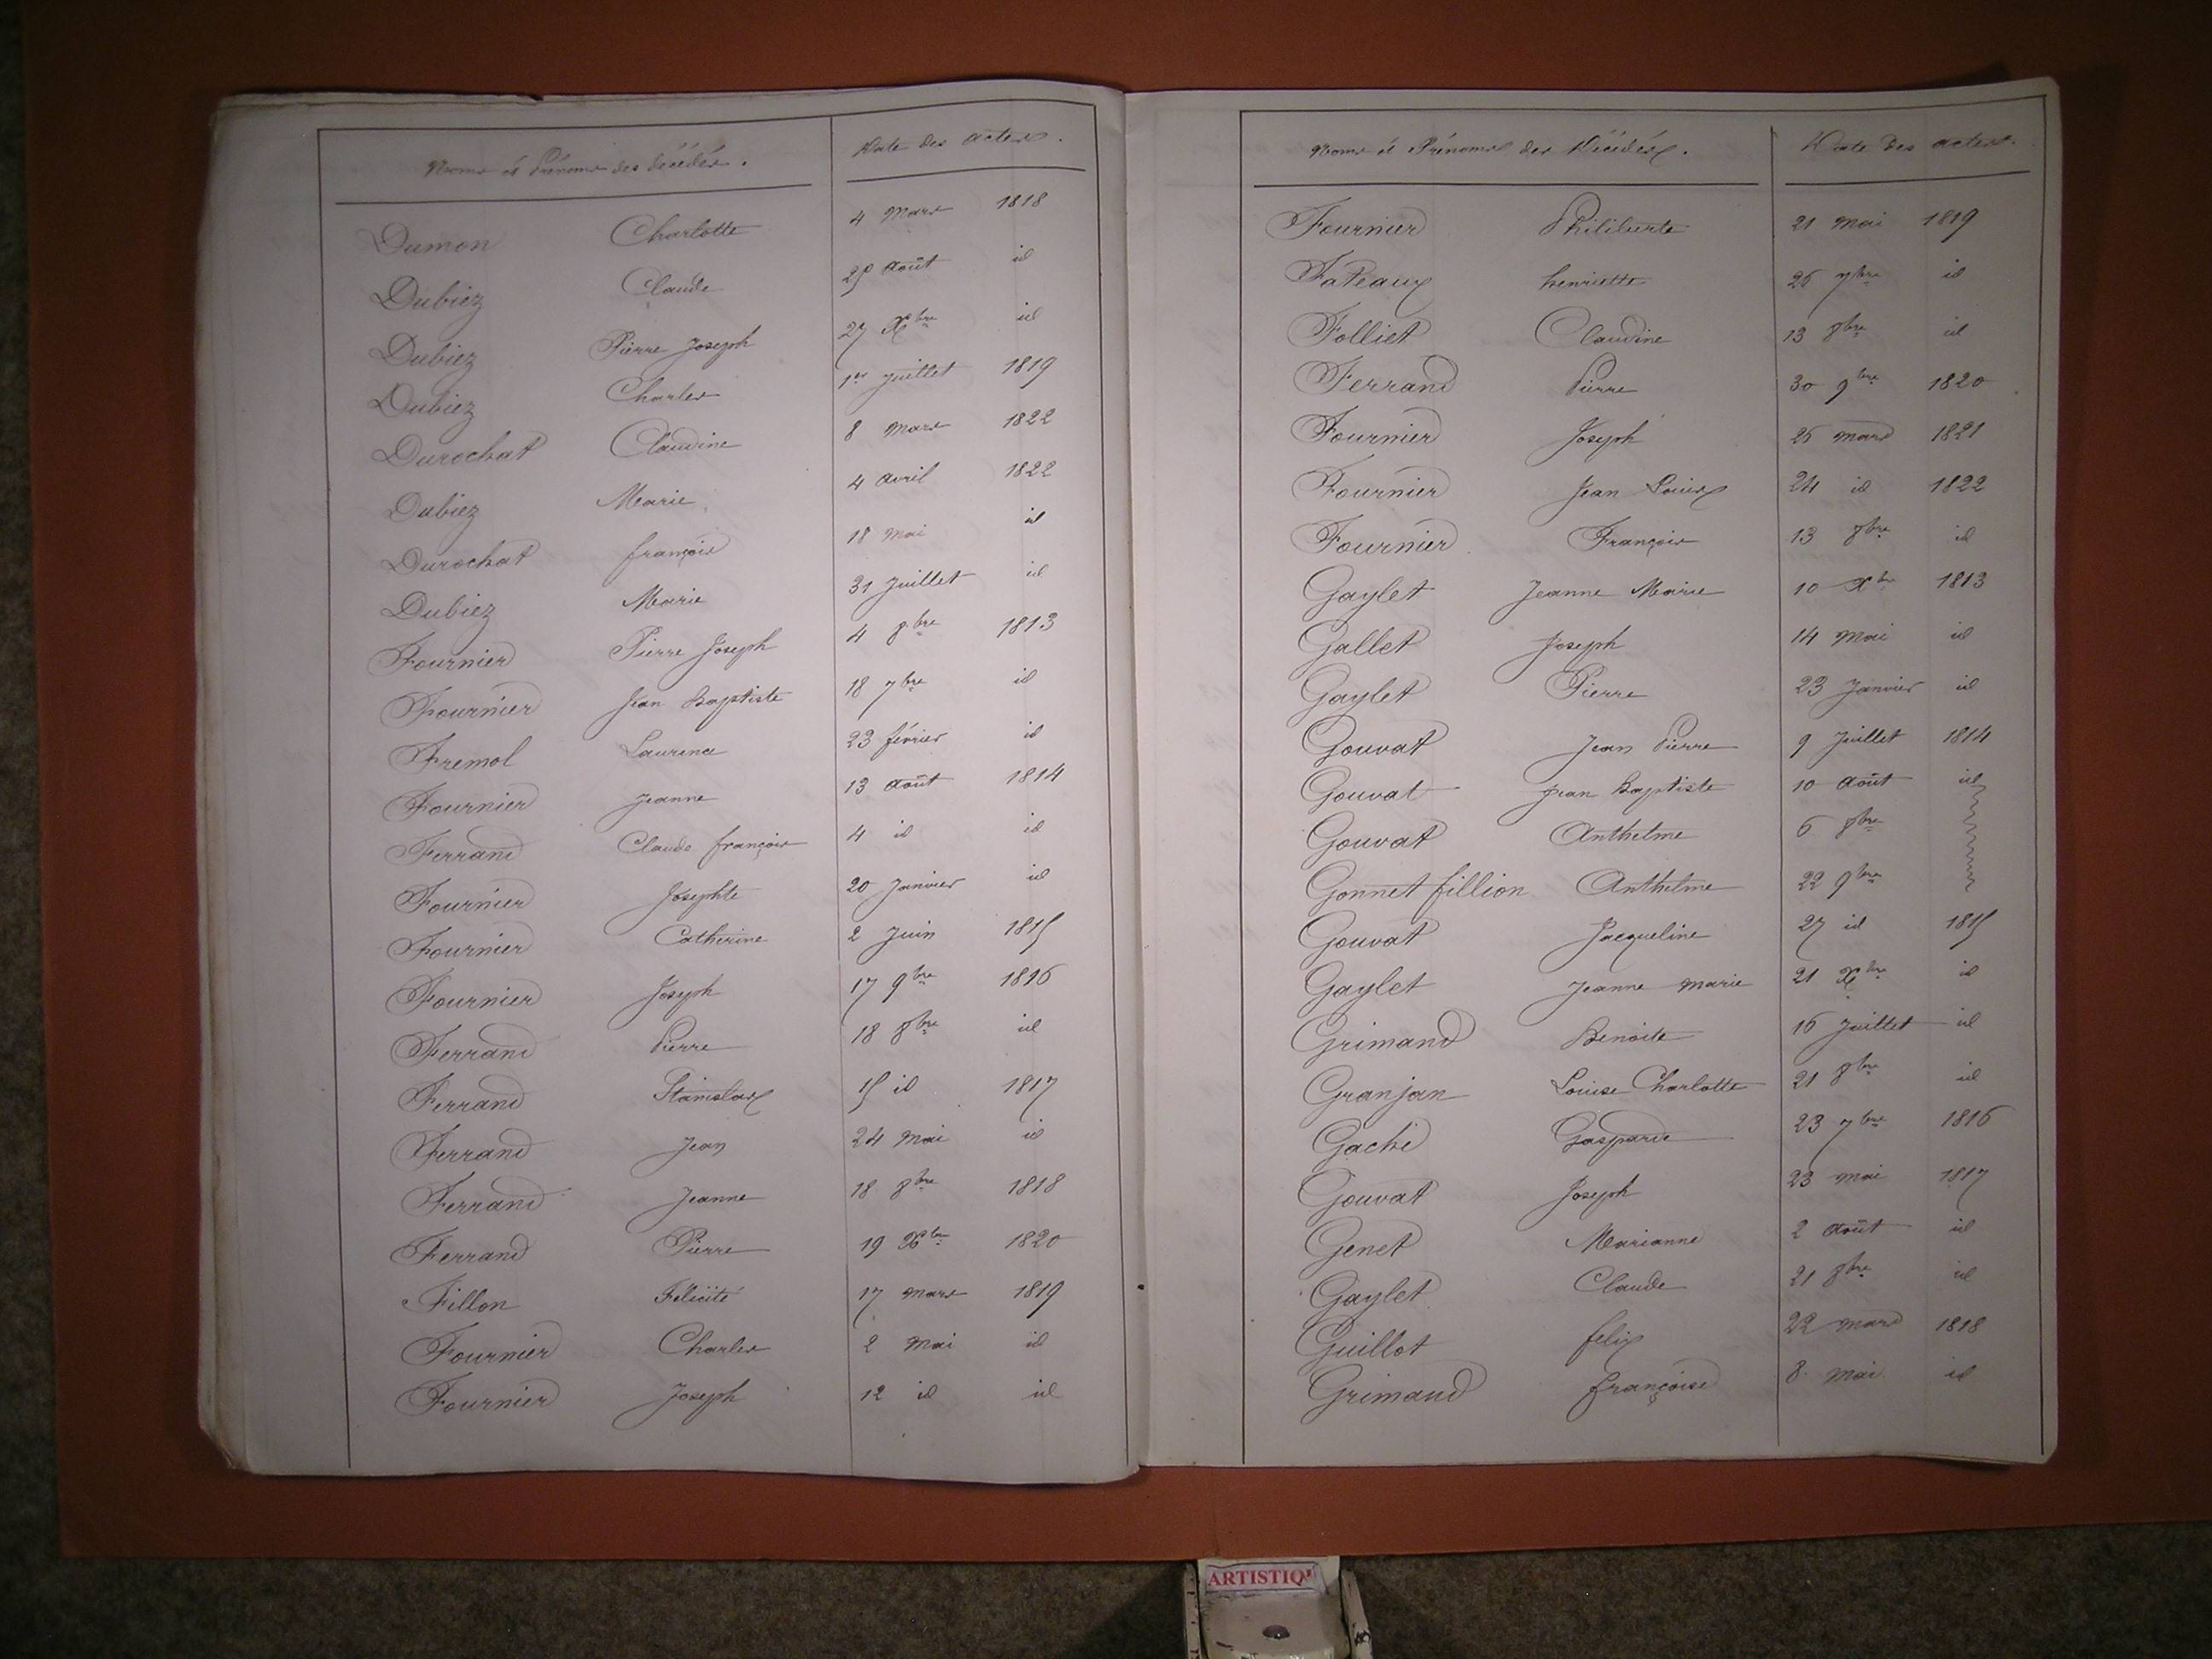 Noms et Prénoms des décédés. Date des actes.
Dumon Charlotte 4 Mars 1818
Dubiez Claude 25 Août id
Dubiez Pierre Joseph 27 Xbre id
Dubiez Charles 1er Juillet 1819
Durochat Claudine 8 Mars 1822
Dubiez Marie 4 avril 1822
Durochat françois 18 Mai id
Dubiez Marie 31 Juillet id
Fournier Pierre Joseph 4 8bre 1813
Fournier Jean Baptiste 18 7bre id
Fremol Laurence 23 février id
Fournier Jeanne 13 août 1814
Ferrand Claude françois 4 id id
Fournier Josephte 20 Janvier id
Fournier Catherine 2 Juin 1815
Fournier Joseph 17 9bre 1816
Ferrand Pierre 18 8bre id
Ferrand Stanislas 15 id 1817
Ferrand Jean 24 Mai id
Ferrand Jeanne 18 8bre 1818
Ferrand Pierre 19 Xbre 1820
Fillon Félicité 17 Mars 1819
Fournier Charles 2 Mai id
Fournier Joseph 12 id id
Noms et Prénoms des Décédés. Date des actes.
Fournier Philiberte 21 Mai 1819
Fateaux henriette 26 7bre id
Folliet Claudine 13 8bre id
Ferrand Pierre 30 9bre 1820
Fournier Joseph 26 mars 1821
Fournier Jean Louis 24 id 1822
Fournier François 13 8bre id
Gaylet Jeanne Marie 10 Xbre 1813
Gallet Joseph 14 Mai id
Gaylet Pierre 23 Janvier id
Gouvat Jean Pierre 9 Juillet 1814
Gouvat Jean Baptiste 10 Août id
Gouvat Anthelme 6 8bre
Gonnet fillion Anthelme 22 9bre
Gouvat Jacqueline 27 id 1815
Gaylet Jeanne Marie 21 Xbre id
Grimand Benoite 16 Juillet id
Granjan Louise Charlotte 21 8bre id
Gachi Gasparde 23 7bre 1816
Gouvat Joseph 23 mai 1817
Genet Marianne 2 Août id
Gaylet Claude 21 8bre id
Guillot felix 22 mars 1818
Grimand françoise 8 mai id
ARTISTIQ